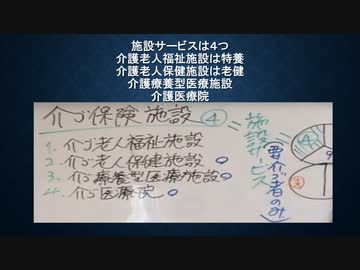 施設サービスは4つ
介護老人福祉施設は特養
介護老人保健施設は老健
介護療養型医療施設
介護医療院
介ゴ保険施設④=施設サービス(要介ゴ者のみ)
1. 介ゴ老人福祉施設
2. 介ゴ老人保健施設
3. 介ゴ療養型医療施設
4. 介ゴ医療院
④
9
③